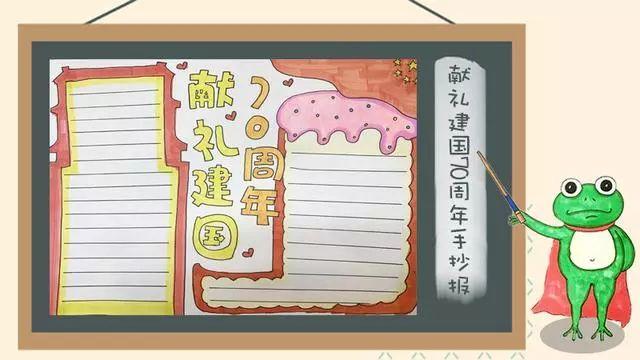 献礼建国
70周年
献礼建国70周年手抄报